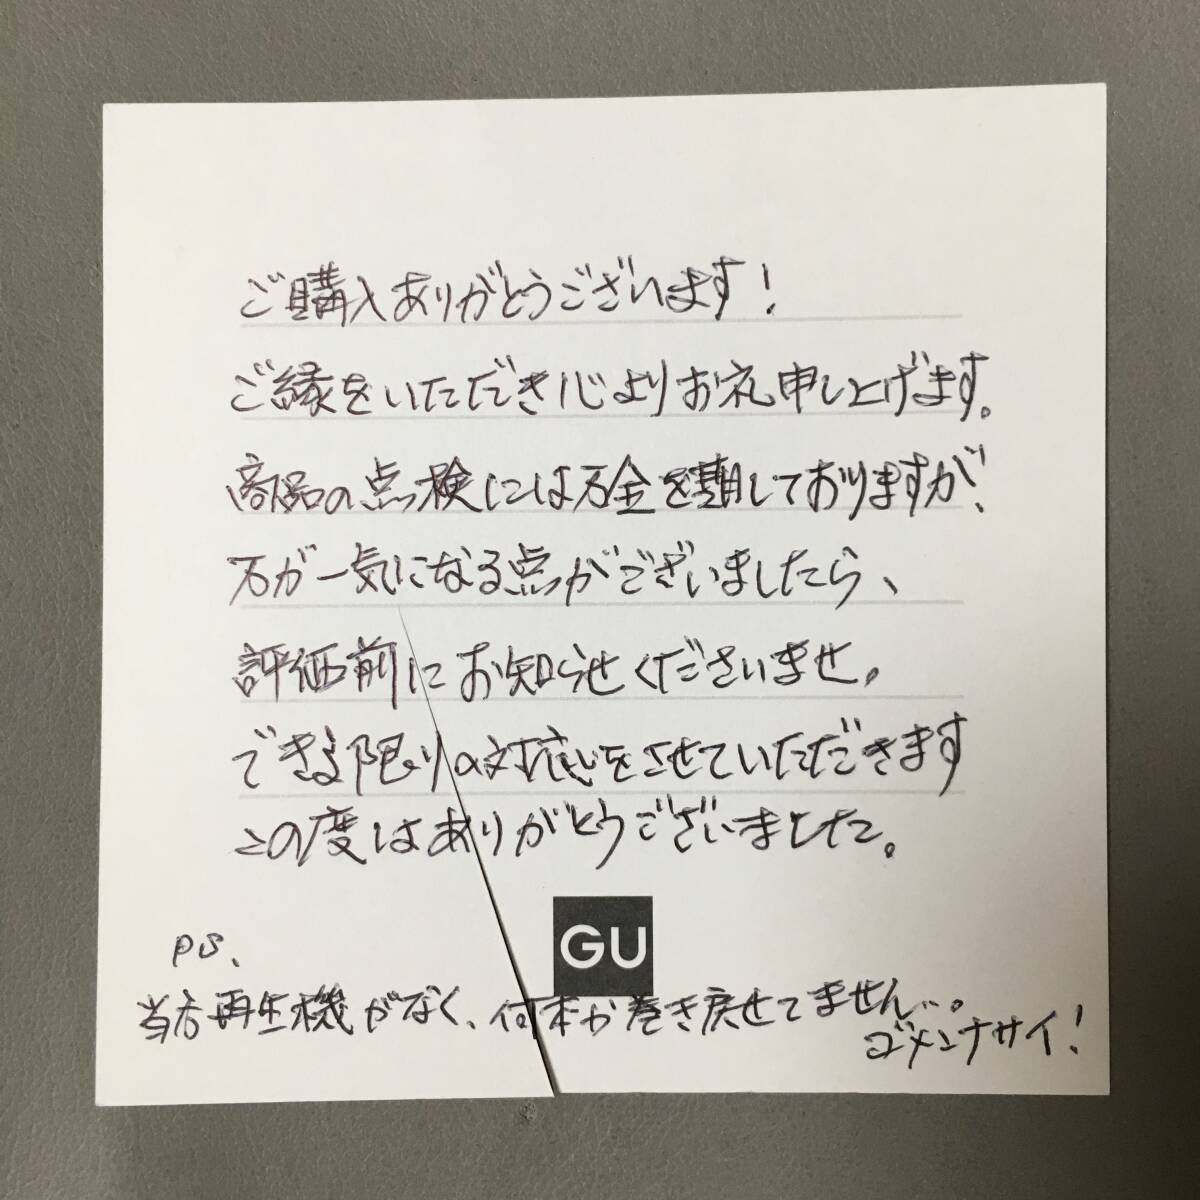 ご購入ありがとうございます！
ご縁をいただき心よりお礼申し上げます。
商品の点検には万全を期しておりますが、
万が一気になる点がございましたら、
評価前にお知らせくださいませ。
できる限りの対応をさせていただきます
この度はありがとうございました。
GU
PS、
当店再生機がなく、何本か巻き戻せてません…。
ゴメンナサイ！